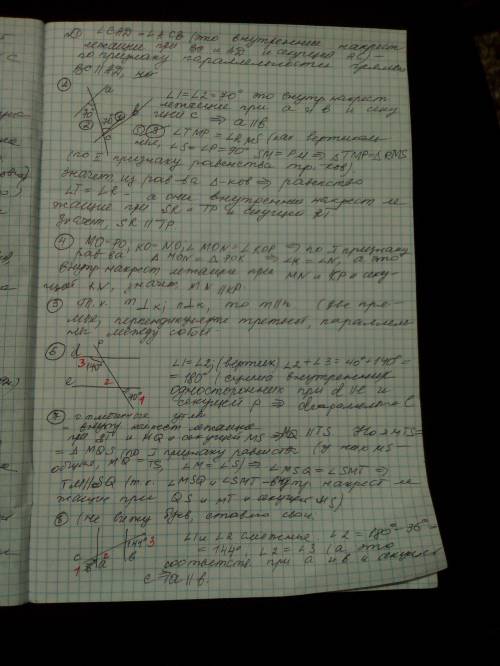 1) ∠CAD = ∠ACB (это внутренние накрест
лежащие при BC и AD и секущей AC) =
по признаку параллельности прямых
BC ∥ AD,
2
a
70°
70°
b
2
c
∠1 = ∠2 = 70° это внутр накрест
лежащие при a и b и секу
щей c ⇒ a∥b
3 ∠TMP = ∠RMS (как вертикаль
ные, ∠S = ∠P = 90° SM = PM ⇒ △TMP = △RMS
(по II признаку равенства тр-ков)
значит из рав-ва △-ков ⇒ равенство
∠T = ∠R - а они внутренние накрест ле
жащие при SR и TP и секущей RT
значит, SR ∥ TP
4 MO = PO, KO = NO, ∠MON = ∠KOP ⇒ по I признаку
рав-ва △ MON = △ POK ⇒ ∠K = ∠N, а это
внутр накрест лежащие при MN и KP и секу-
щей KN, значит MN ∥ KP.
5 Т.к. m⊥k; n⊥k, то m∥n (две пря-
мые, перпендикуляр третьей, параллель
ны между собой
6
P
d
3 140°
e 2
40° 1
∠1 = ∠2, (вертик) ∠2 + ∠3 = 40° + 140° =
= 180° (сумма внутренних
односторонних при d и e и
секущей P ⇒
7 отмеченные углы
- внутр накрест лежащие
при ST и MQ и секущей MS ⇒ MQ ∥ TS △MTS =
= △ MQS (по I признаку равенства (у них MS -
общие, MQ = TS, ∠M = ∠S) ⇒ ∠MSQ = ∠SMT ⇒
TM ∥ SQ (т.к. ∠MSQ и ∠SMT - внутр накрест ле
жащие при QS и MT и секущей MS)
8 (не вижу букв, ставлю свои.
c
144° 3
2
1
a b
∠1 и ∠2 смежные, ∠2 = 180° - 36° =
= 144°, ∠2 = ∠3 (а это
соответств. при a и b и секущей
c ⇒ a ∥ b.